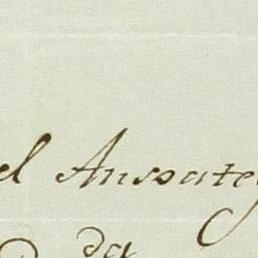 el Ansoateg
da